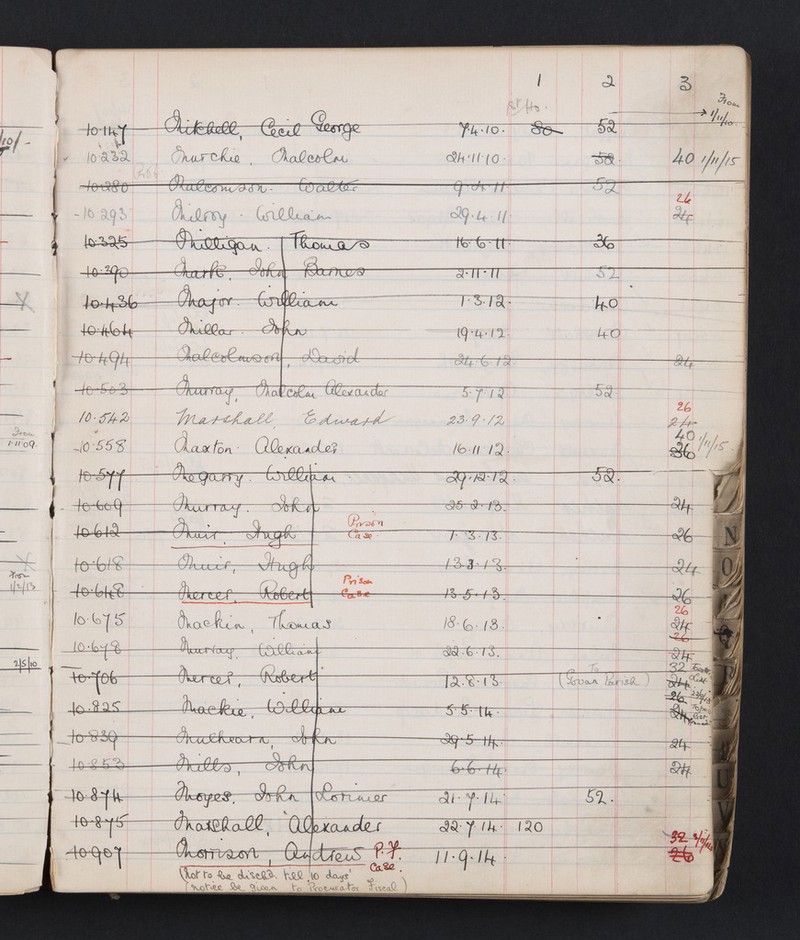 1 2 3
From
10.147 Mitchell, Cecil George 7.4.10. 80 52 → 1/11/10
10.232 Murchie. Malcolm 24.11.10. 52. 40 1/11/15
10.280 Malcomson. Walter 9.4.11 52
26
10.293 Milroy. William 29.4.11 24
10.325 Milligan. Thomas 16.6.11. 36
10.390 Mark. John Barnes 2.11.11 52
10.436 Major. William 1.3.12. 40
10.464 Millar. John 19.4.12. 40
10.494 Malcolmson, David 24.6.12 24
10.503 Murray, Malcolm Alexander 5.7.12 52.
26
10.542 Marshall, Edward 23.9.12 24
40 1/11/15.
10.558 Maxton. Alexander 16.11.12.
10.577 Megarry. William 29.12.12. 52.
10.609 Murray. John 25.2.13. 24
Prison
10.612 Muir, Hugh Case 1.3.13. 26
10.618 Muir, Hugh 13.3.13. 24
Prison
10.648 Mercer, Robert Case 13.5.13. 26
26
10.675 Mackin, Thomas 18.6.13. 24
26
10.678 Murray, William 22.6.13. 24
32
10.706 Mercer, Robert 12.8.13. (To Govan Parish) 24
26
10.825 Mackie, William 5.5.14. 24
10.839 Mulhearn, John 29.5.14. 24
10.853 Mills, John 6.6.14. 24
10.874 Moyes. John Lorimer 21.7.14. 52.
10.875 Marshall, Alexander 22.7.14. 120
32
10.907 Morrison, Andrew P.F. Case. 11.9.14. 26
(Not to be dischd. till 10 days'
notice be given to Procurator Fiscal)
From
1.11.09.
X
From
1/2/13
2/5/10
N
O
U
V